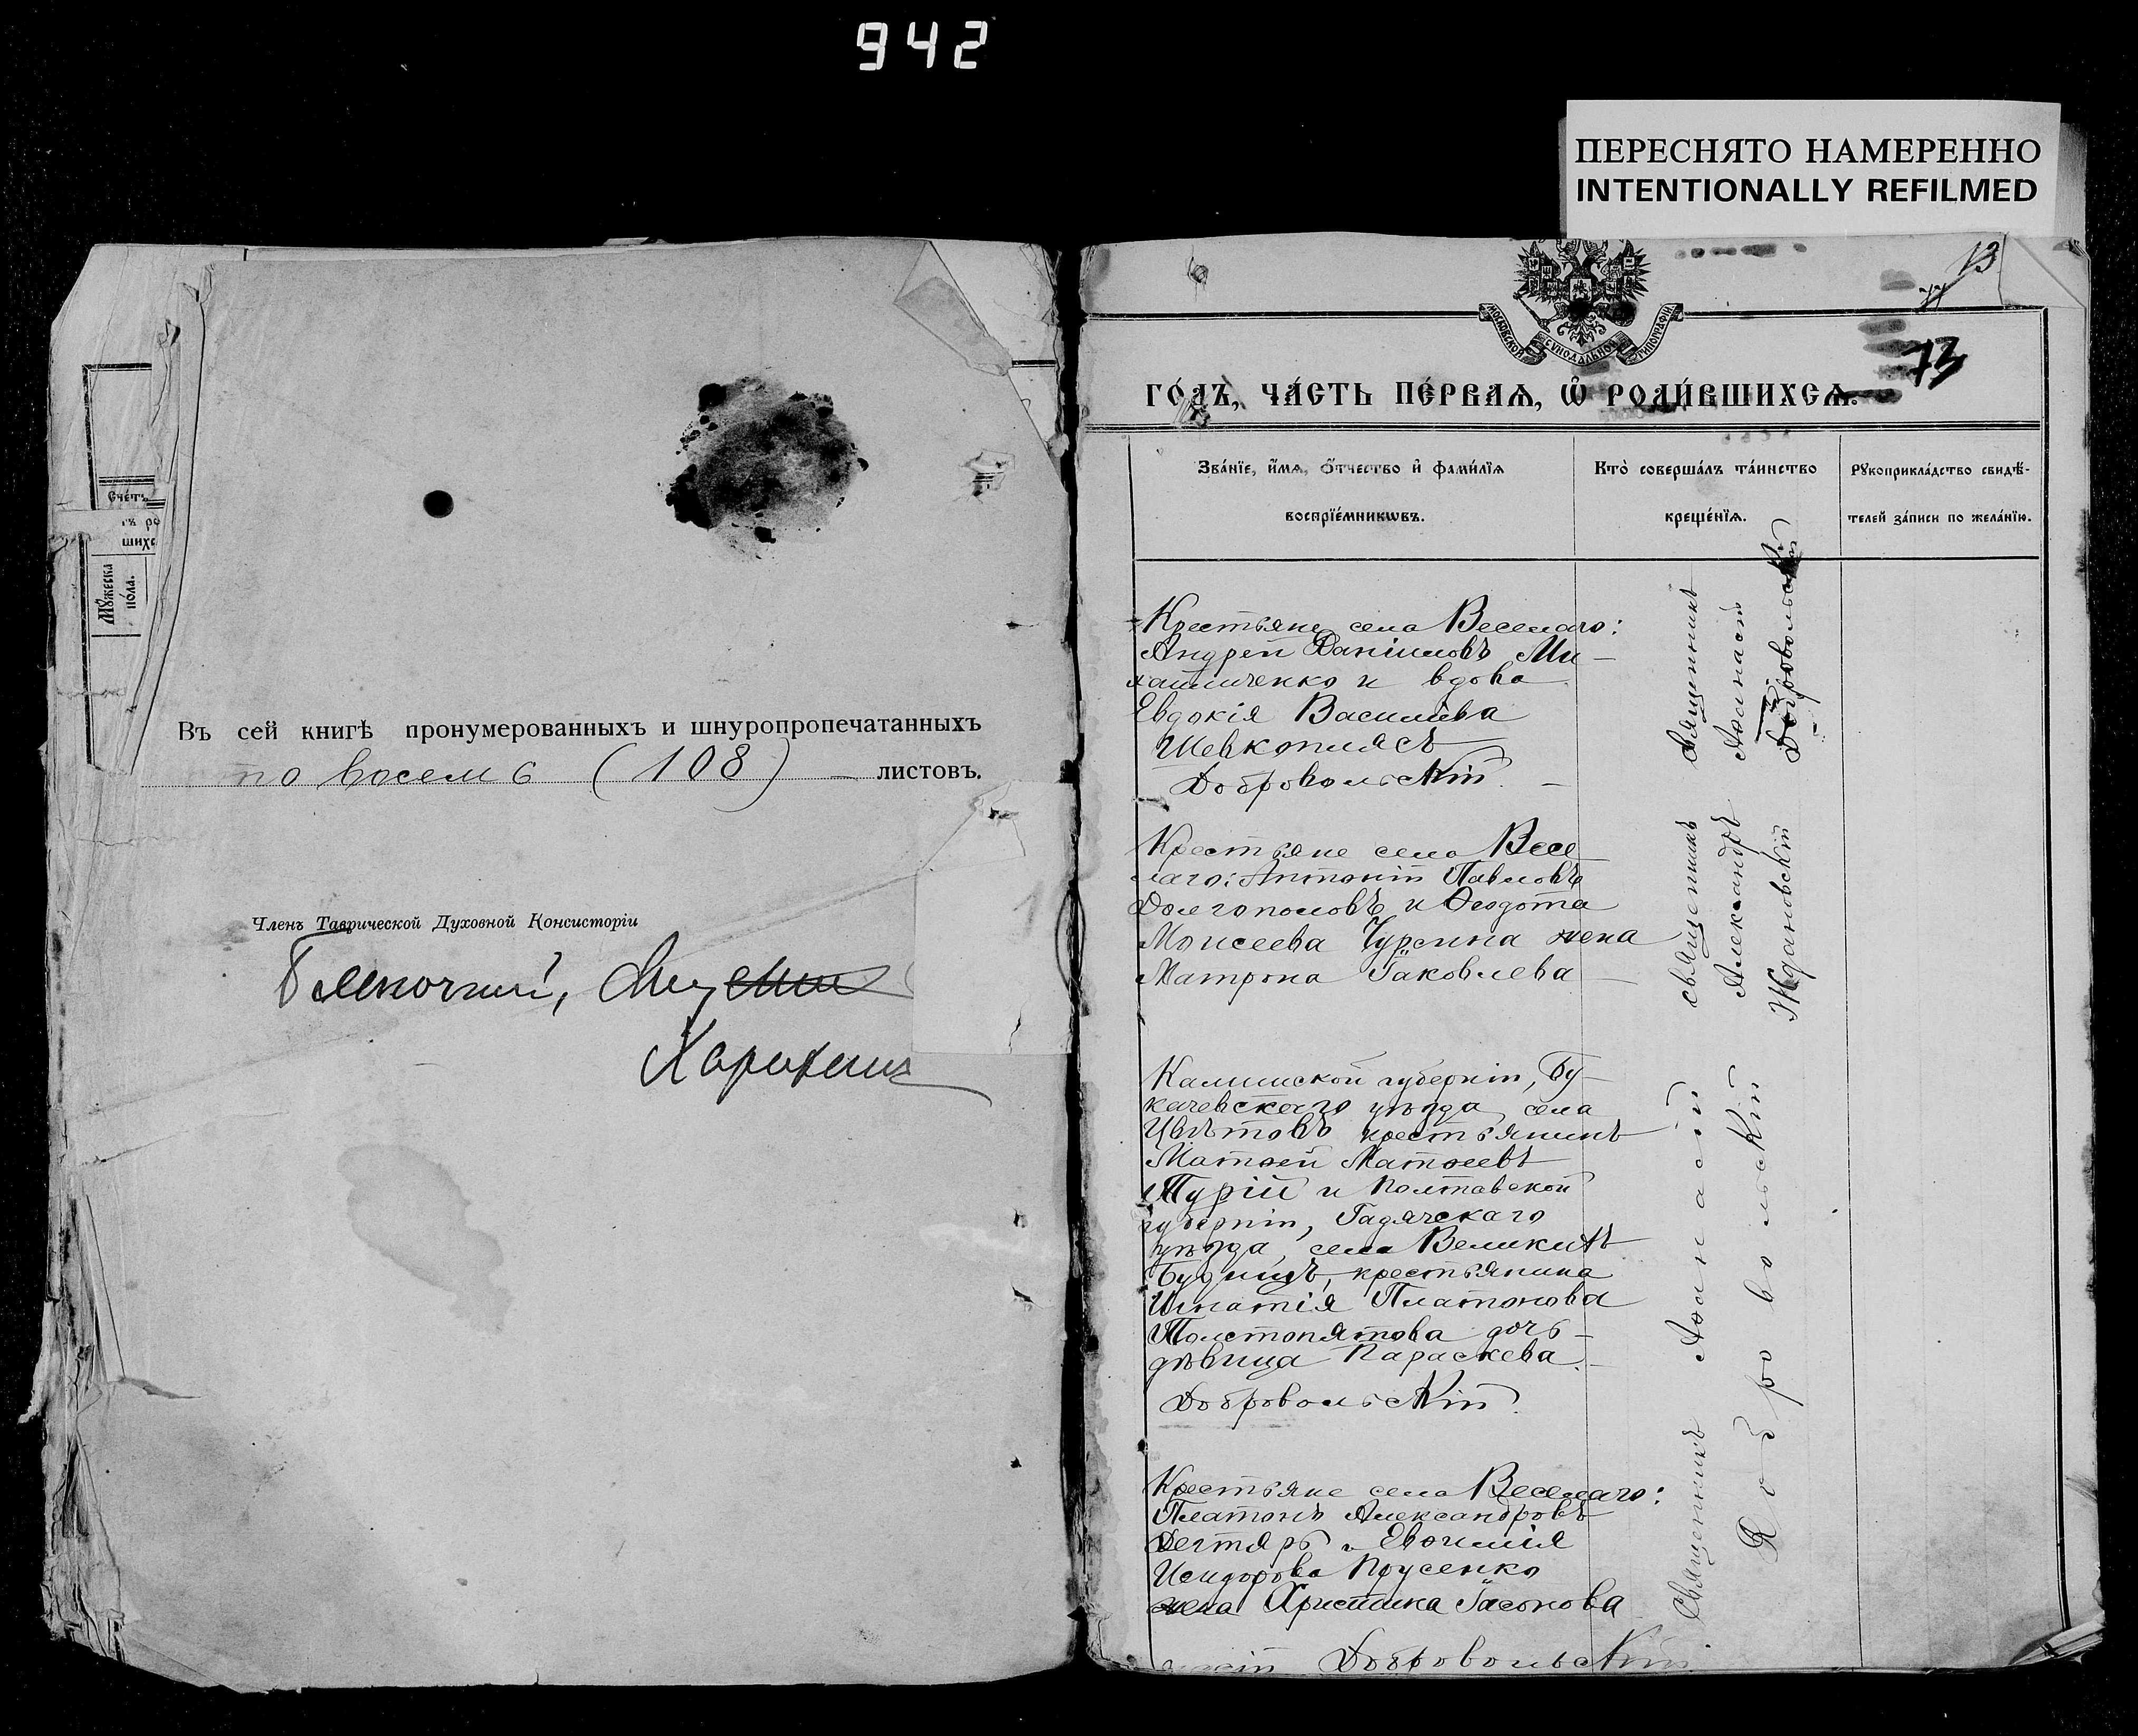 942
ПЕРЕСНЯТО НАМЕРЕННО
INTENTIONALLY REFILMED
Счетъ
ро
шихс
Мꙋжеска
пола.
Въ сей книгѣ пронумерованныхъ и шнуропропечатанныхъ
по восемь (108) — листовъ.
Членъ Таврической Духовной Консисторіи
13
73
МОСКОВСКОЙ СѴНОДАЛЬНОЙ ТИПОГРАФІИ
ГО́ДЪ, ЧА́СТЬ ПЕ́РВАѦ, Ѡ҆ РОДИ́ВШИХСѦ.
Зва́нїе, и҆́мѧ, ѻ҆́тчество и҆ фами́лїѧ
воспрїе́мникѡвъ.
Кто̀ соверша́лъ та́инство
креще́нїѧ.
Рꙋкоприкла́дство свидѣ́-
телей за́писи по жела́нїю.
Крестьяне села Веселаго:
Андрей Даніиловъ Ми-
хайличенко и вдова
Евдокія Василіева
Шевкоплясъ
Добровольскій. —
Священникъ
Аѳанасій
Добровольскій
Крестьяне села Весе-
лаго: Антоній Павловъ
Долгополовъ и Ѳеодота
Моисеева Чурсина жена
Матрона Іаковлева —
священникъ
Александръ
Ждановскій
губерніи, Бу-
качевскаго уѣзда, села
Цвѣтовъ крестьянинъ
Матѳей Матѳеевъ
Турій и Полтавской
губерніи, Гадячскаго
уѣзда, села Великихъ
Будищъ, крестьянина
Игнатія Платонова
Толстопятова дочь —
дѣвица Параскева. —
Добровольскій.
Крестьяне села Веселаго:
Платонъ Александровъ
Дегтярь и Евѳимія
Исидорова Прусенко
жена Христина Іасонова
Священникъ Аѳанасій
Добровольскій
Добровольскій.